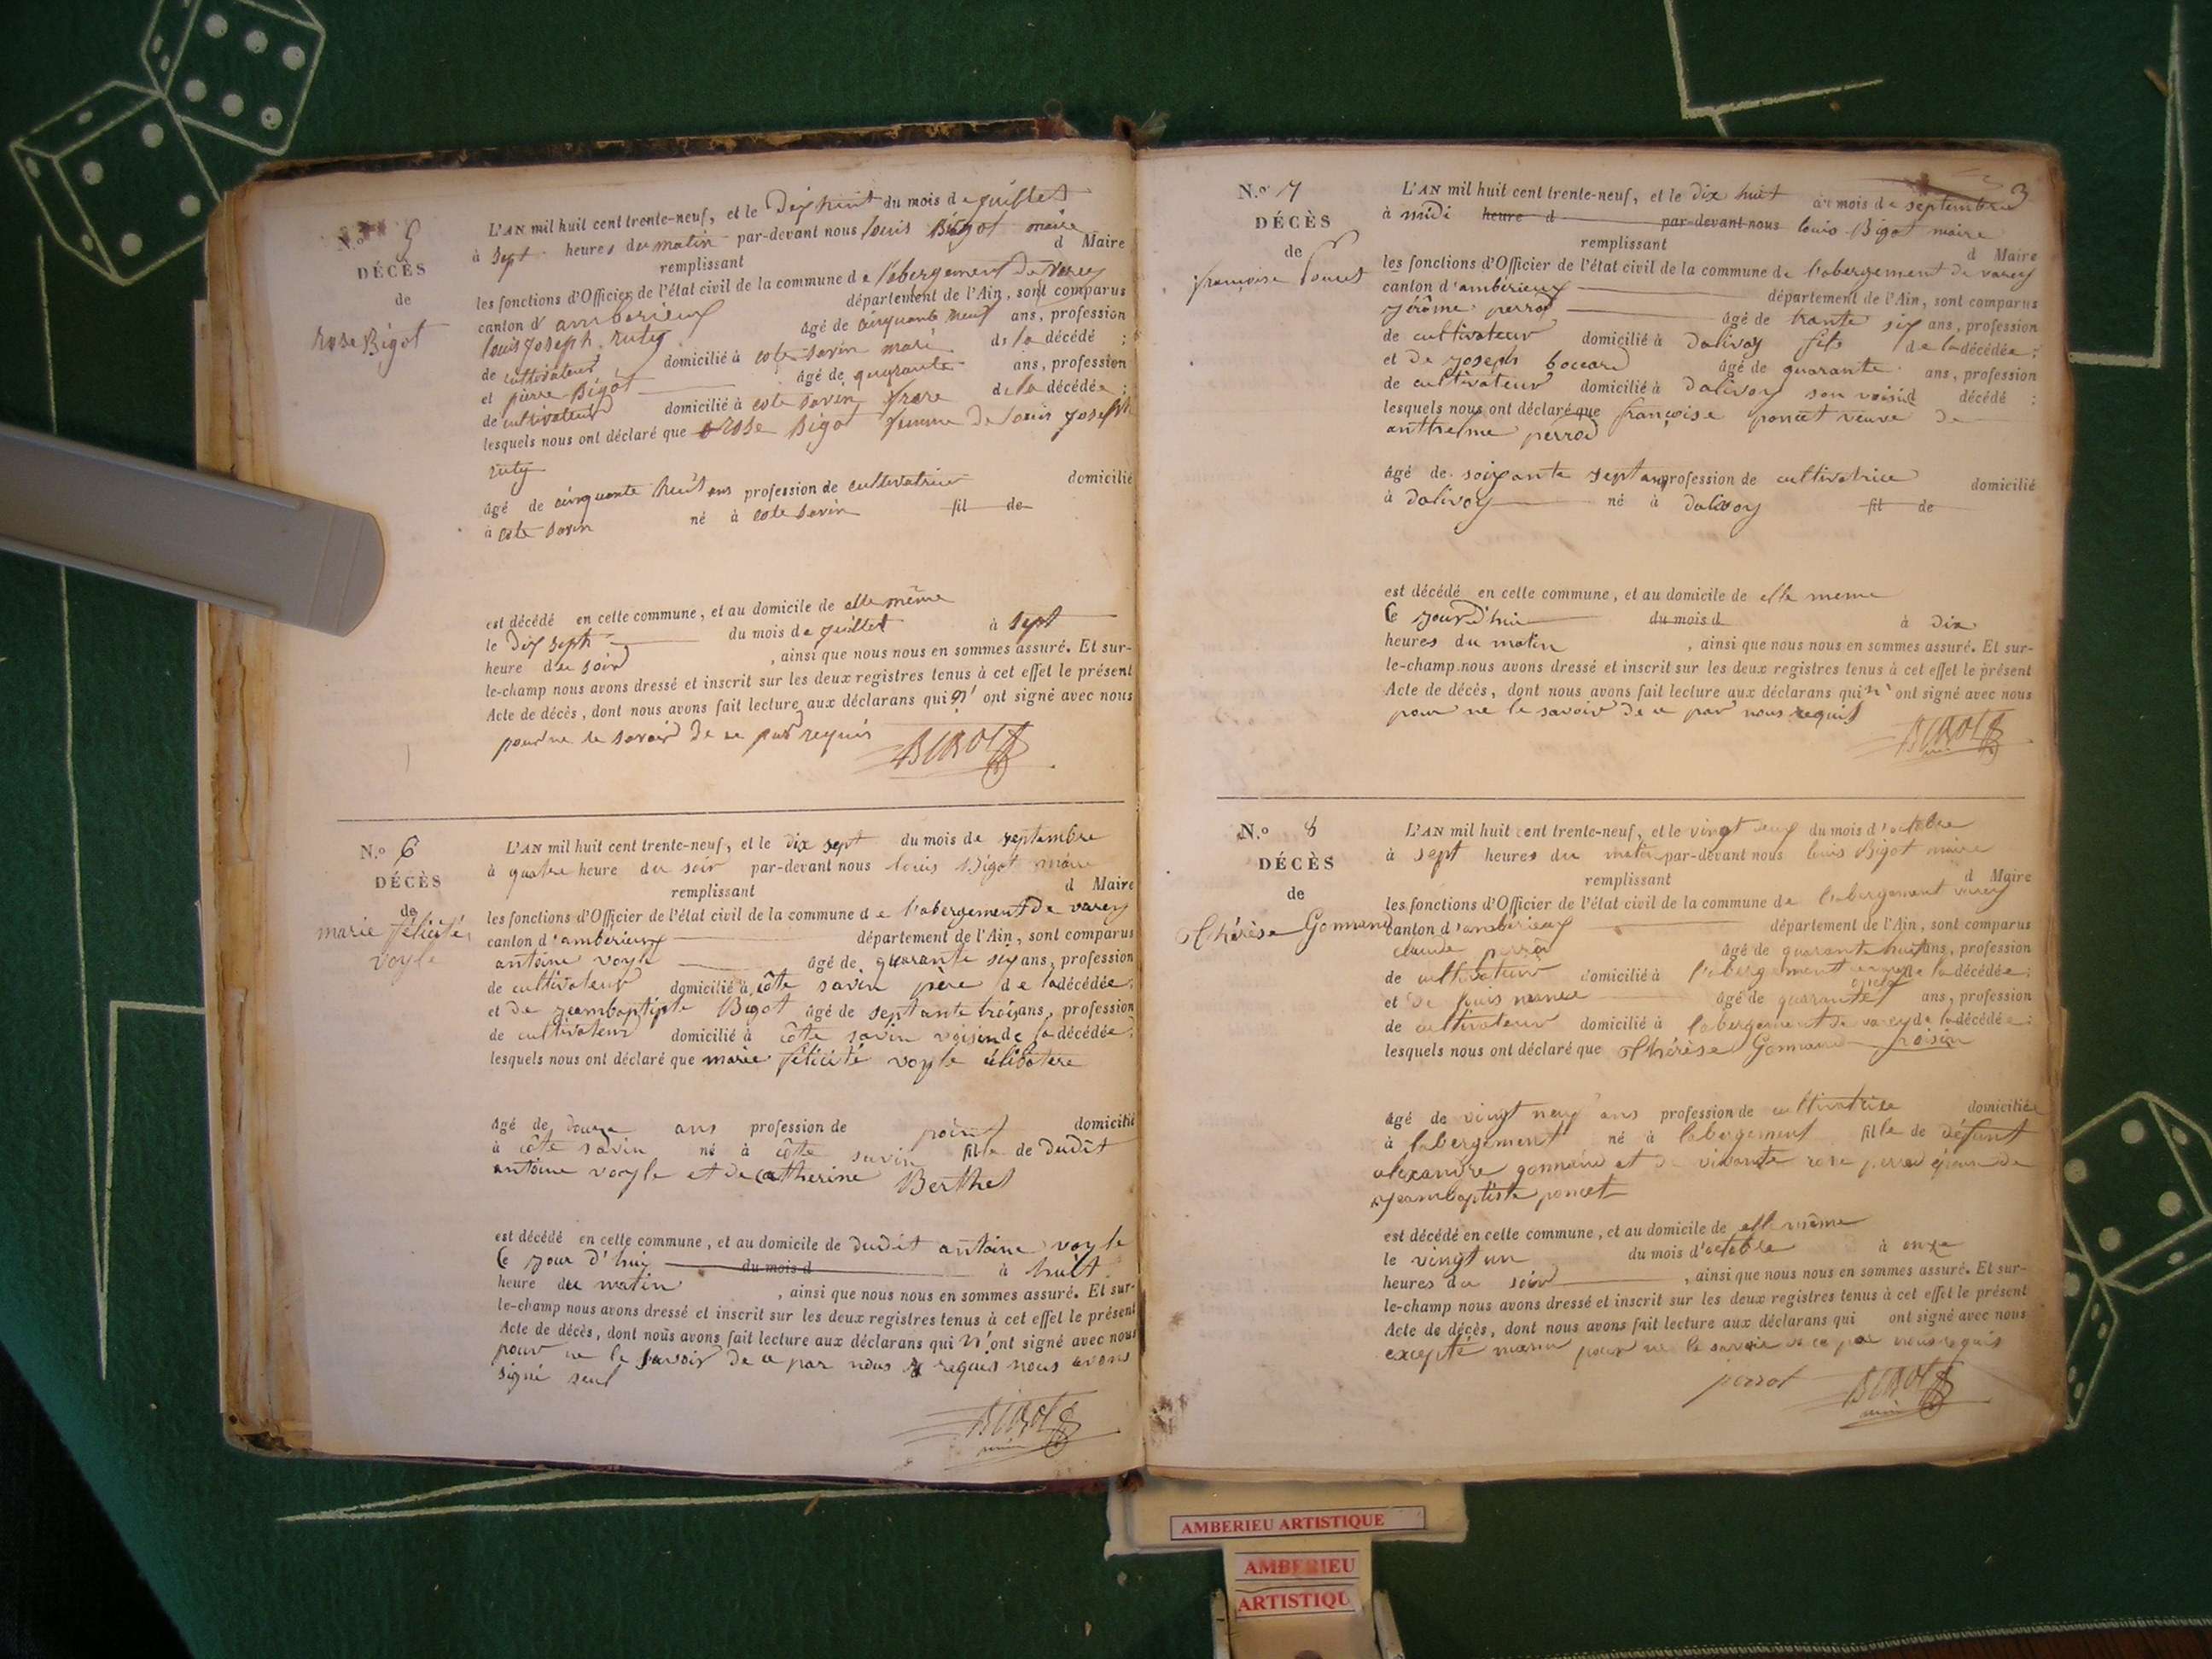 N.o 5
DÉCÈS
de
rose Bigot
L'AN mil huit cent trente-neuf, et le Dix huit du mois de juillet
à sept heures du matin par-devant nous louis Bigot maire
remplissant d Maire
les fonctions d'Officier de l'état civil de la commune de l'abergement De varey
canton d'amberieux département de l'Ain, sont comparus
louis joseph ruty âgé de cinquante neuf ans, profession
de cultivateur domicilié à cote savin mari de la décédé ;
et pierre Bigot âgé de quarante ans, profession
de cultivateur domicilié à cote savin frere de la décédée ;
lesquels nous ont déclaré que rose Bigot femme De louis joseph
ruty
âgé de cinquante huit ans profession de cultivatrice domicilié
à cote savin né à cote savin fil de
est décédé en cette commune, et au domicile de elle même
le dix sept du mois de juillet à sept
heure du soir , ainsi que nous nous en sommes assuré. Et sur-
le-champ nous avons dressé et inscrit sur les deux registres tenus à cet effet le présent
Acte de décès, dont nous avons fait lecture aux déclarans qui n'ont signé avec nous
pour ne le savoir De ce par requis
BIGOT
N.o 6
DÉCÈS
de
marie félicité
voyle
L'AN mil huit cent trente-neuf, et le dix sept du mois de septembre
à quatre heure du soir par-devant nous louis Bigot maire
remplissant d Maire
les fonctions d'Officier de l'état civil de la commune de l'abergement De varey
canton d'ambérieux département de l'Ain, sont comparus
antoine voyle âgé de quarante six ans, profession
de cultivateur domicilié à côte savin père de la décédée ;
et de jeambaptiste Bigot âgé de septante trois ans, profession
de cultivateur domicilié à côte savin voisin de la décédée ;
lesquels nous ont déclaré que marie félicité voyle célibatere
âgé de douze ans profession de point domicilié
à côte savin né à côte savin fille de dudit
antoine voyle et de catherine Berthet
est décédé en cette commune, et au domicile de dudit antoine voyle
Ce jour d'hui du mois d à huit
heure du matin , ainsi que nous nous en sommes assuré. Et sur-
le-champ nous avons dressé et inscrit sur les deux registres tenus à cet effet le présent
Acte de décès, dont nous avons fait lecture aux déclarans qui n'ont signé avec nous
pour ne le savoir De ce par nous requis nous avons
signé seul
BIGOT
maire
3
N.o 7
DÉCÈS
de
françoise Poncet
L'AN mil huit cent trente-neuf, et le dix huit du mois de septembre
à midi heure d par-devant nous louis Bigot maire
remplissant d Maire
les fonctions d'Officier de l'état civil de la commune de l'abergement de varey
canton d'ambérieux département de l'Ain, sont comparus
jérôme perrod âgé de trante six ans, profession
de cultivateur domicilié à dalivoy fils de la décédée ;
et de joseph boccard âgé de quarante ans, profession
de cultivateur domicilié à dalivoy son voisin d décédé :
lesquels nous ont déclaré que françoise poncet veuve de
anthelme perrod
âgé de soixante sept ans profession de cultivatrice domicilié
à dalivoy né à dalivoy fil de
est décédé en cette commune, et au domicile de elle meme
Ce jourd'hui du mois d à dix
heures du matin , ainsi que nous nous en sommes assuré. Et sur-
le-champ nous avons dressé et inscrit sur les deux registres tenus à cet effet le présent
Acte de décès, dont nous avons fait lecture aux déclarans qui n'ont signé avec nous
pour ne le savoir de ce par nous requis
BIGOT
N.o 8
DÉCÈS
de
Thérèse Gonnand
L'AN mil huit cent trente-neuf, et le vingt deux du mois d'octobre
à sept heures du matin par-devant nous louis Bigot maire
remplissant d Maire
les fonctions d'Officier de l'état civil de la commune de l'abergement varey
canton d'ambérieux département de l'Ain, sont comparus
claude perrod âgé de quarante huit ans, profession
de cultivateur domicilié à l'abergement de la décédée ;
et de louis âgé de quarante ans, profession
de cultivateur domicilié à l'abergement de varey de la décédée ;
lesquels nous ont déclaré que Thérèse Gonnand
âgé de vingt neuf ans profession de cultivatrice domiciliée
à l'abergement né à l'abergement fille de défunt
alexandre gonnand et de vivante rose perrod épouse de
jeambaptiste poncet
est décédé en cette commune, et au domicile de elle même
le vingt un du mois d'octobre à onze
heures du soir , ainsi que nous nous en sommes assuré. Et sur-
le-champ nous avons dressé et inscrit sur les deux registres tenus à cet effet le présent
Acte de décès, dont nous avons fait lecture aux déclarans qui ont signé avec nous
excepté pour ne le savoir de ce par nous requis
perrot BIGOT
maire
AMBERIEU ARTISTIQUE
AMBERIEU
ARTISTIQU